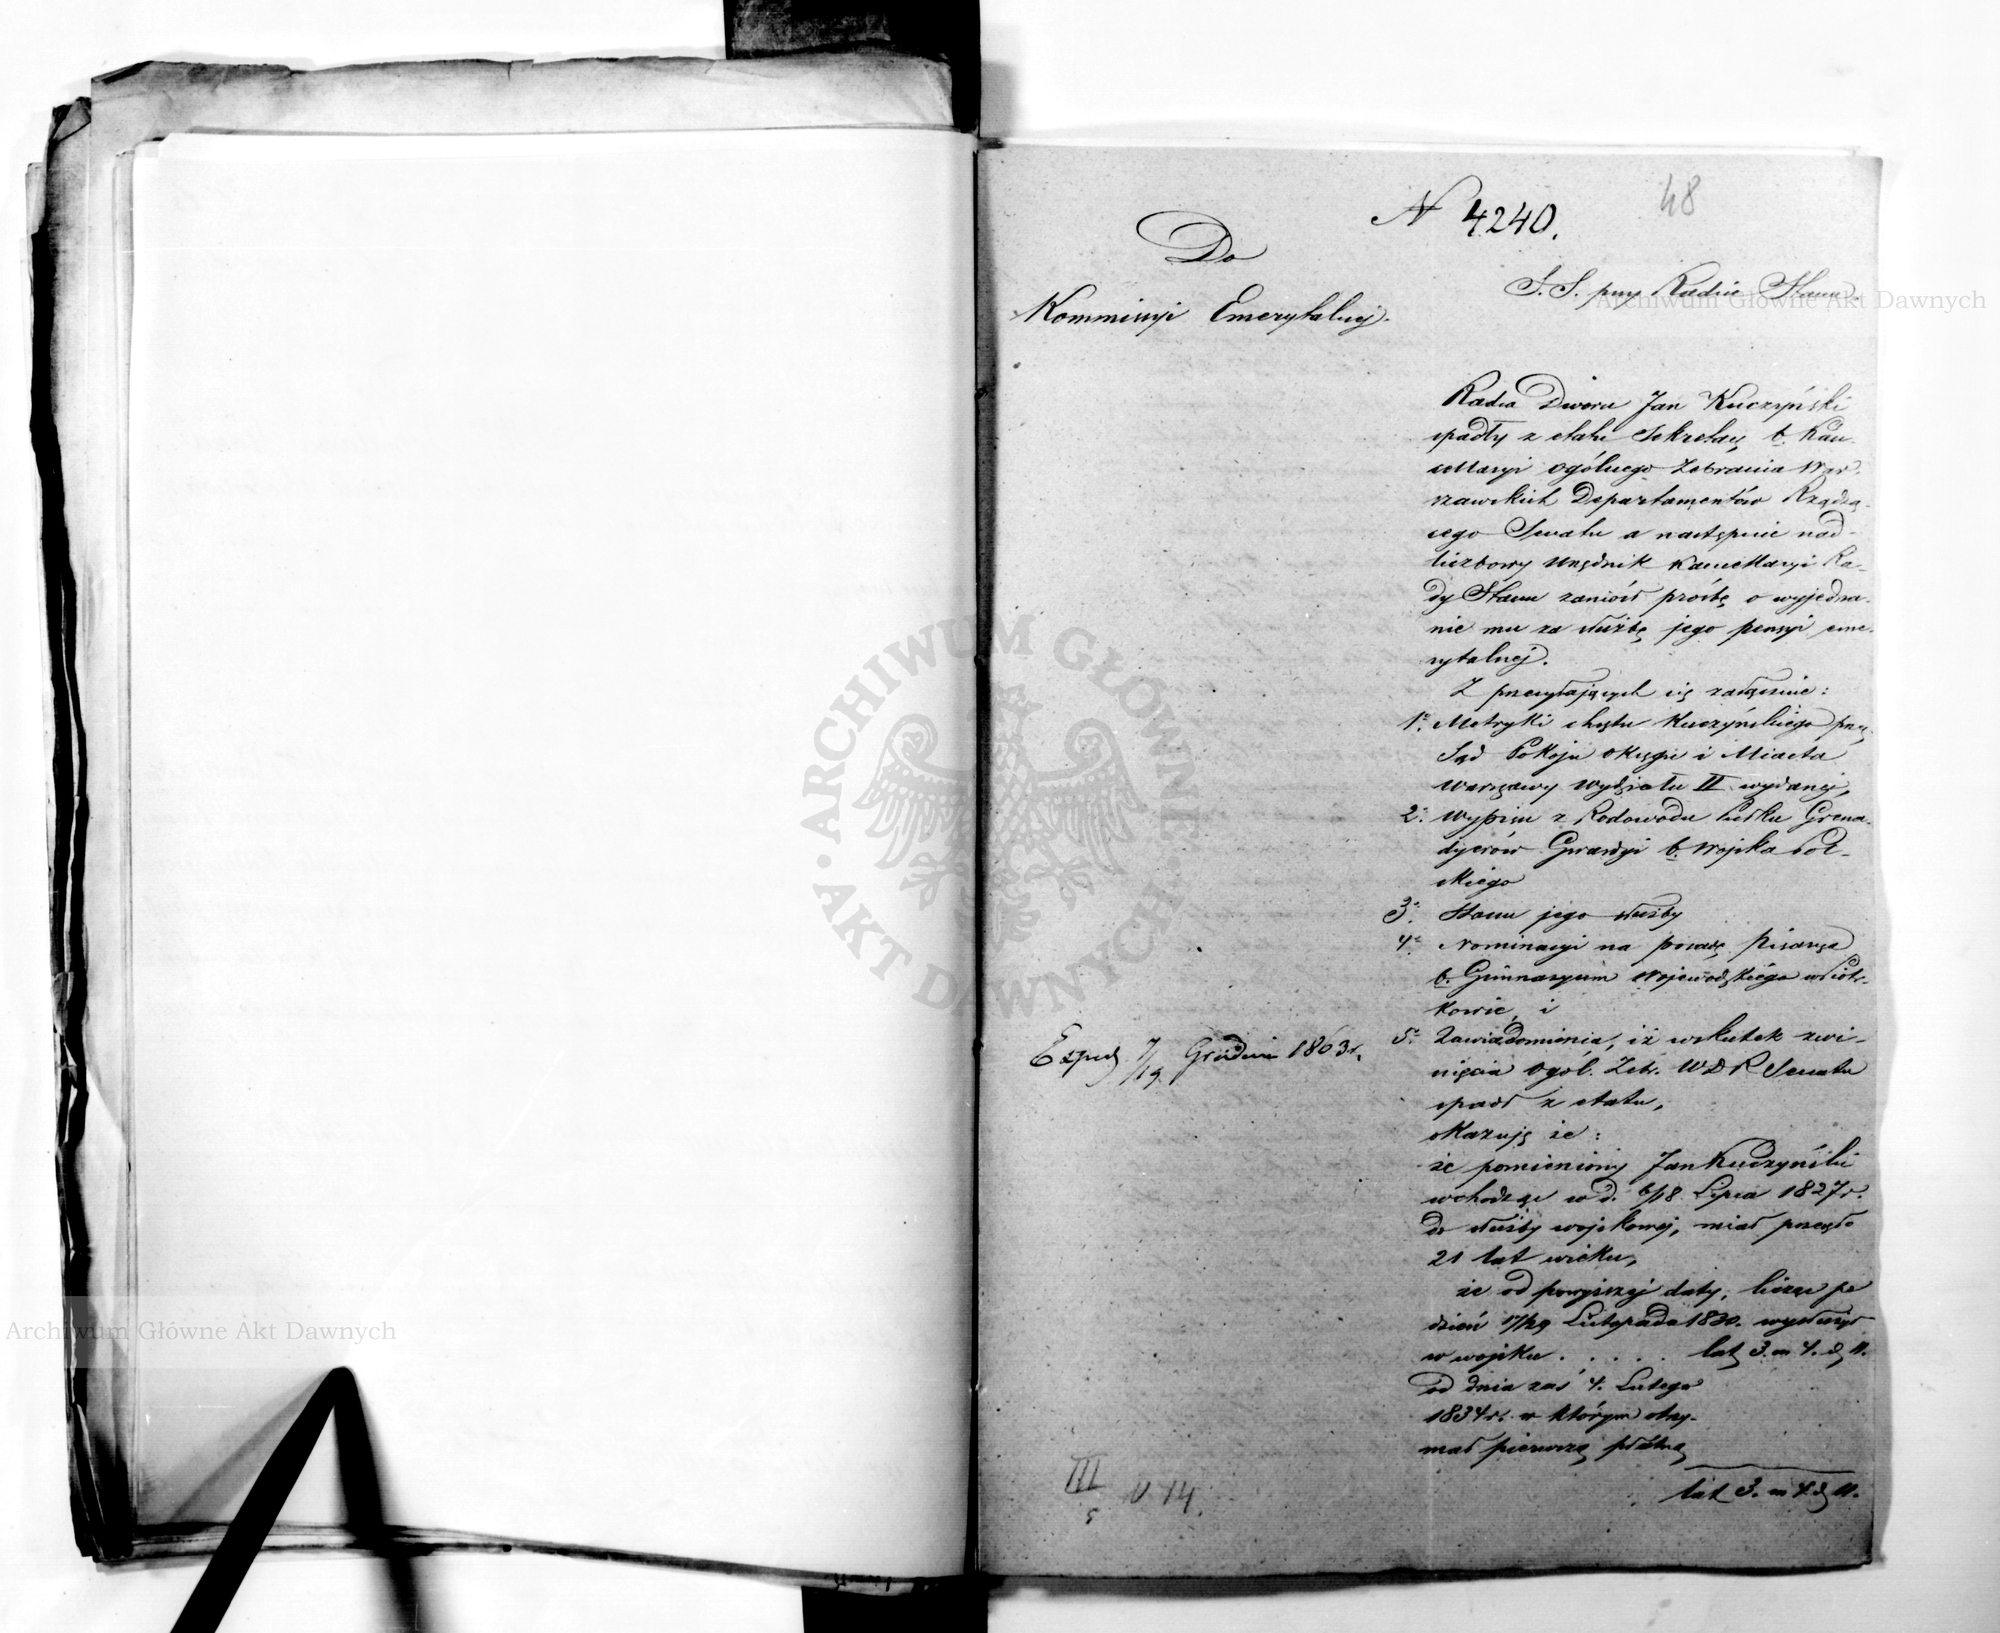 48
N 4240.
Do
Kommissyi Emerytalnej.
S. S. przy Radzie Stanu.
Radca Dworu Jan Kuczyński
spadły z etatu Sekretarz b. Kan-
cellaryi ogólnego Zebrania War-
szawskich Departamentów Rządzą-
cego Senatu a następnie nad-
liczbowy urzędnik Kancellaryi Ra-
dy Stanu zaniósł prośbę o wyjedna-
nie mu za służbę jego pensyi eme-
rytalnej.
Z przesyłających się załącznie:
1º. Metryki chrztu Kuczyńskiego przez
Sąd Pokoju Okręgu i Miasta
Warszawy Wydziału II wydanej,
2º. Wypisu z Rodowodu Pułku Grena-
dyerów Gwardyi b. Wojska Pol-
skiego
3º. Stanu jego służby
4º. Nominacyi na posadę Pisarza
b. Gimnazyum Wojewódzkiego w Piotr-
kowie, i
5º. Zawiadomienia, iż wskutek zwi-
nięcia Ogól. Zebr. W D R Senatu
spadł z etatu,
okazuję że:
że pomieniony Jan Kuczyński
wchodząc w d. 6/18 Lipca 1827 r.
do służby wojskowej, miał przeszło
21 lat wieku,
że od powyższej daty, licząc po
dzień 17/29 Listopada 1830. wysłużył
w wojsku . . . . . lat 3. m 4. d 11.
od dnia zaś 4. Lutego
1834 r. w którym otrzy-
mał pierwszą płatną
lat 3. m 4. d 11.
Exped 7/19 Grudnia 1863 r.
III
5
N 14.
Archiwum Główne Akt Dawnych
Archiwum Główne Akt Dawnych
ARCHIWUM GŁÓWNE AKT DAWNYCH